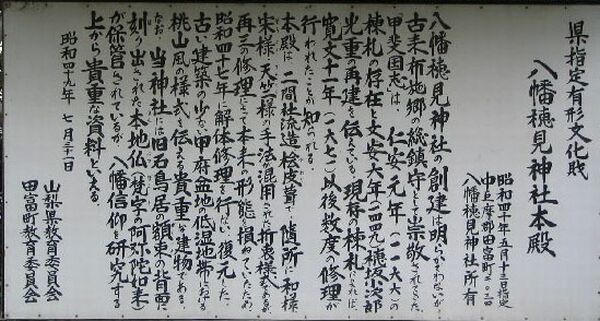 県指定有形文化財
八幡穂見神社本殿
昭和四十年五月十三日指定
中巨摩郡田富町
八幡穂見神社所有
八幡穂見神社の創建は明らかでないが、
古来布施郷の総鎮守として崇敬されてきた。
甲斐国志は、仁安元年(一一六六)の
棟札の存在と文安六年(一四四九)穂坂小次郎
光重の再建を伝えている。現存の棟札によれば、
寛文十一年(一六七一)以後数度の修理が
行われたことが知られる。
本殿は、二間社流造、桧皮葺で、随所に和様
宋様、天竺様の手法混用された折衷様であるが、
再三の修理によって本来の形態を損ねていたため、
昭和四十七年に解体修理を行ない、復元した。
古い建築の少ない甲府盆地の低湿地帯における
桃山風の様式を伝える貴重な建物である。
なお、当神社には旧石鳥居の額束の背面に
刻り出された本地仏(梵字の阿弥陀如来)
が保管されているが、八幡信仰研究する
上から貴重な資料といえる。
昭和四十九年 七月三十一日
山梨県教育委員会
田富町教育委員会